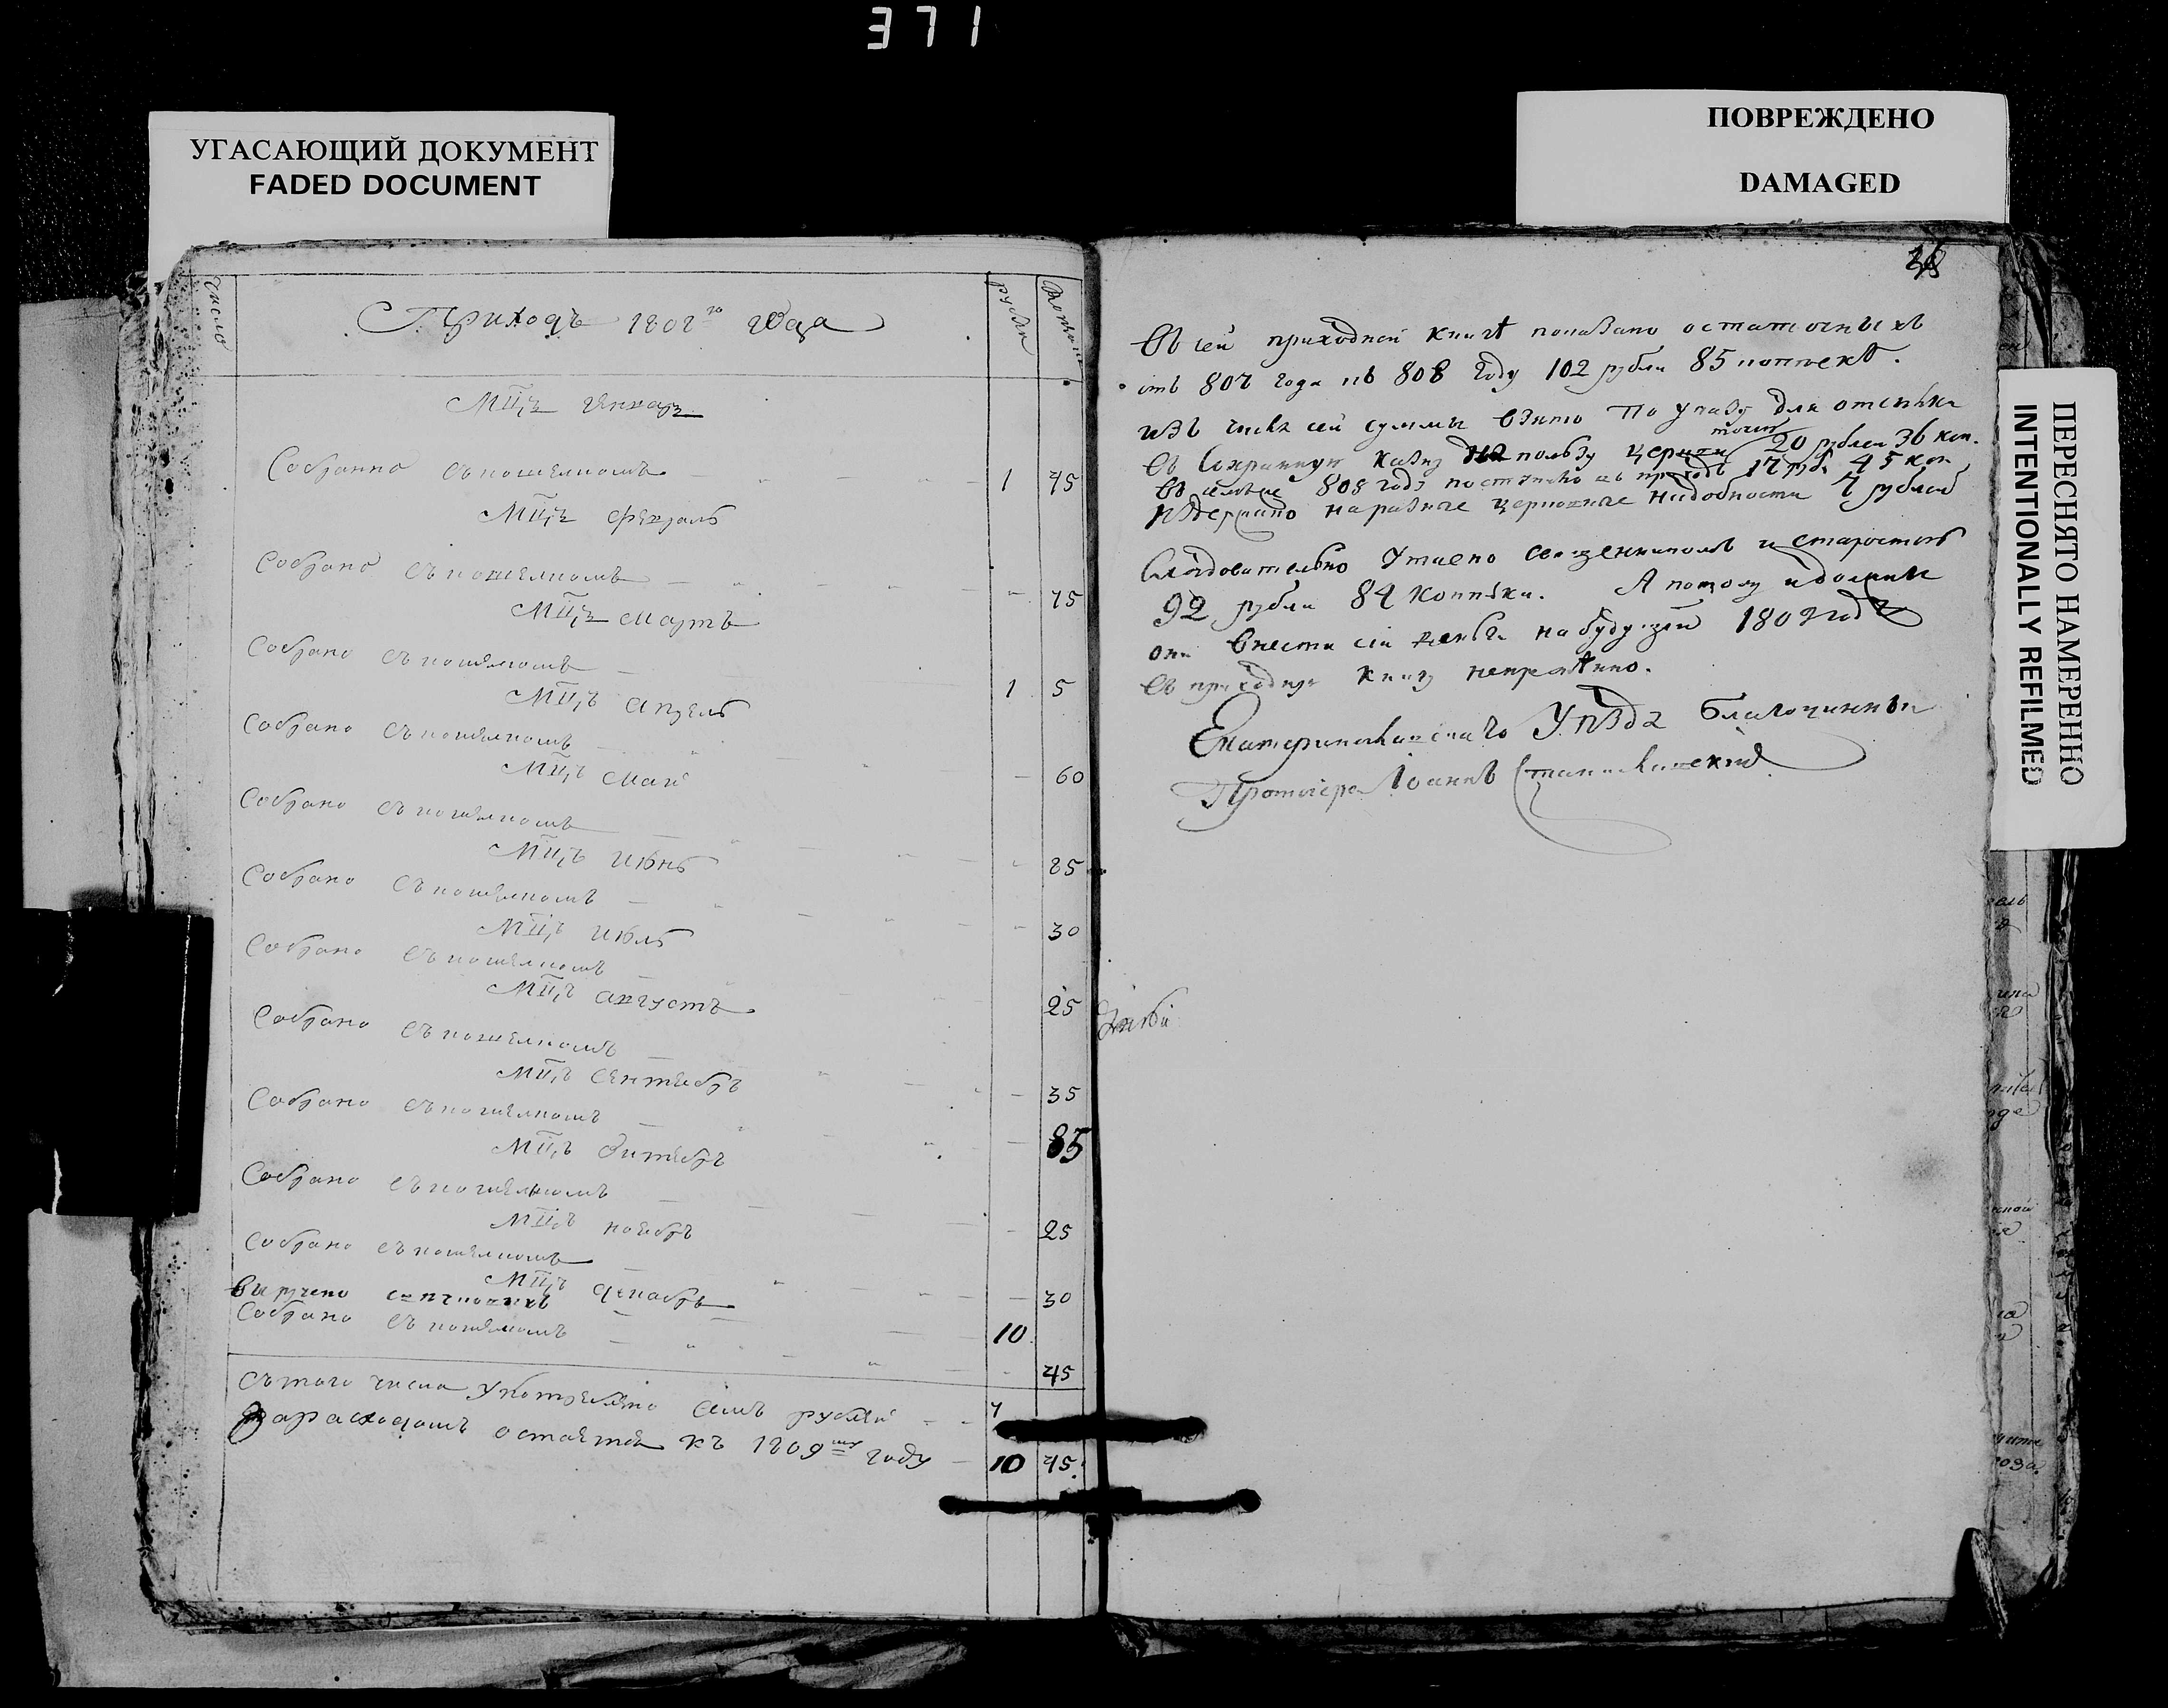 371
УГАСАЮЩИЙ ДОКУМЕНТ
FADED DOCUMENT
ПОВРЕЖДЕНО
DAMAGED
ПЕРЕСНЯТО НАМЕРЕННО
INTENTIONALLY REFILMED
число
Приходъ 1808го года
рубли
копѣики
Мцъ Генварь
Собранно съ кошелкомъ 1 75
Мцъ Февраль
Собрано съ кошелкомъ 75
Мцъ Мартъ
Собрано съ кошелкомъ 1 5
Мцъ Апрель
Собрано съ кошелкомъ 60
Мцъ Маий
Собрано съ кошелкомъ 85
Мцъ Июнь
Собрано съ кошелкомъ 30
Мцъ Июль
Собрано съ кошелкомъ 25
Мцъ Августъ
Собрано съ кошелкомъ 35
Мцъ Сентебръ
Собрано съ кошелкомъ 85
Мцъ Октебръ
Собрано съ кошелкомъ 25
Мцъ Ноебръ
Собрано съ кошелкомъ 30
Мцъ Декабръ
Выручено 10
Собрано съ кошелкомъ 45
Съ того числа употреблено семъ рублей 7
За расходомъ остаетса къ 1809му году 10 45
Въ сей приходной книгѣ показано остаточныхъ
отъ 807 года къ 808 году 102 рубли 85 копѣекъ.
изъ числа сей суммы взято по указу для отсылки
въ казну на пользу церкви 20 рублей 36 коп.
въ 808 году поступило въ приходъ 17 руб: 45 коп
издержано на разные церковные надобности 7 рублей
Слѣдовательно утаено священникомъ и старостою
92 рубли 84 копѣйки. А потому и должны
они внести сіи деньги на будущій 1809 годъ
въ приходную книгу непремѣнно.
Екатеринославскаго Уѣзда Благочинный
Протоіерей Іоаннъ Станиславскій